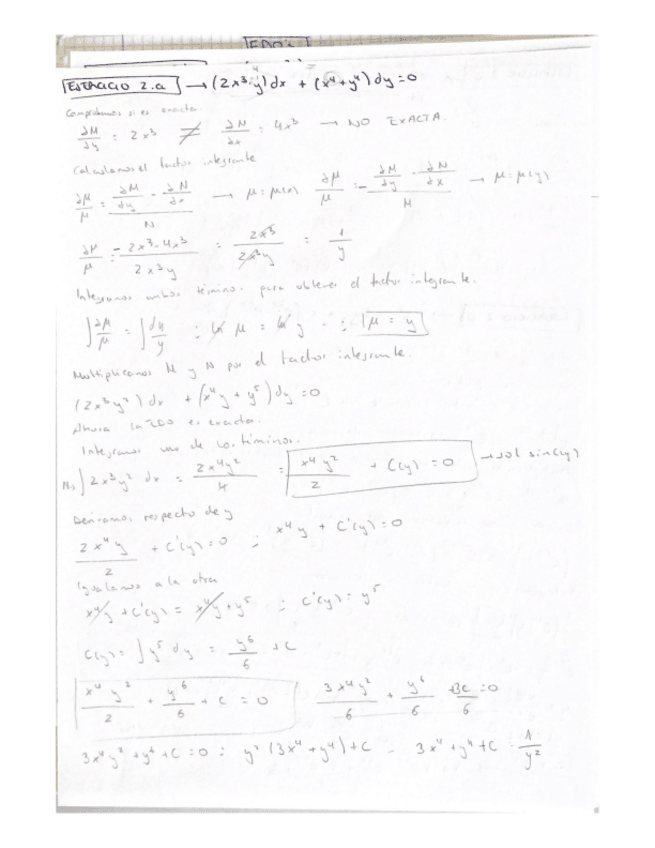 EDO's
EJERCICIO 2.a → (2x³y) dx + (x⁴+y⁴) dy = 0
Comprobamos si es exacta.
∂M/∂y = 2x³ ≠ ∂N/∂x = 4x³ → NO EXACTA.
Calculamos el factor integrante
∂μ/μ = (∂M/∂y - ∂N/∂x)/N → μ=μ(x) ∂μ/μ = -(∂M/∂y - ∂N/∂x)/M → μ=μ(y)
∂μ/μ = - (2x³-4x³)/(2x³y) = 2x³/(2x³y) = 1/y
Integramos ambos términos para obtener el factor integrante.
∫∂μ/μ = ∫dy/y ∴ ln μ = ln y ∴ μ = y
Multiplicamos M y N por el factor integrante.
(2x³y²) dx + (x⁴y + y⁵) dy = 0
Ahora la EDO es exacta.
Integramos uno de los términos.
∫2x³y² dx = 2x⁴y²/4 = x⁴y²/2 + C(y) = 0 → sol sin C(y)
Derivamos respecto de y
2x⁴y/2 + C'(y) = 0 ∴ x⁴y + C'(y) = 0
Igualamos a la otra
x⁴y + C'(y) = x⁴y + y⁵ ∴ C'(y) = y⁵
C(y) = ∫y⁵ dy = y⁶/6 + C
x⁴y²/2 + y⁶/6 + C = 0 3x⁴y²/6 + y⁶/6 + 3C/6 = 0
3x⁴y² + y⁶ + C = 0 = y²(3x⁴+y⁴)+C - 3x⁴+y⁴+C = 1/y²